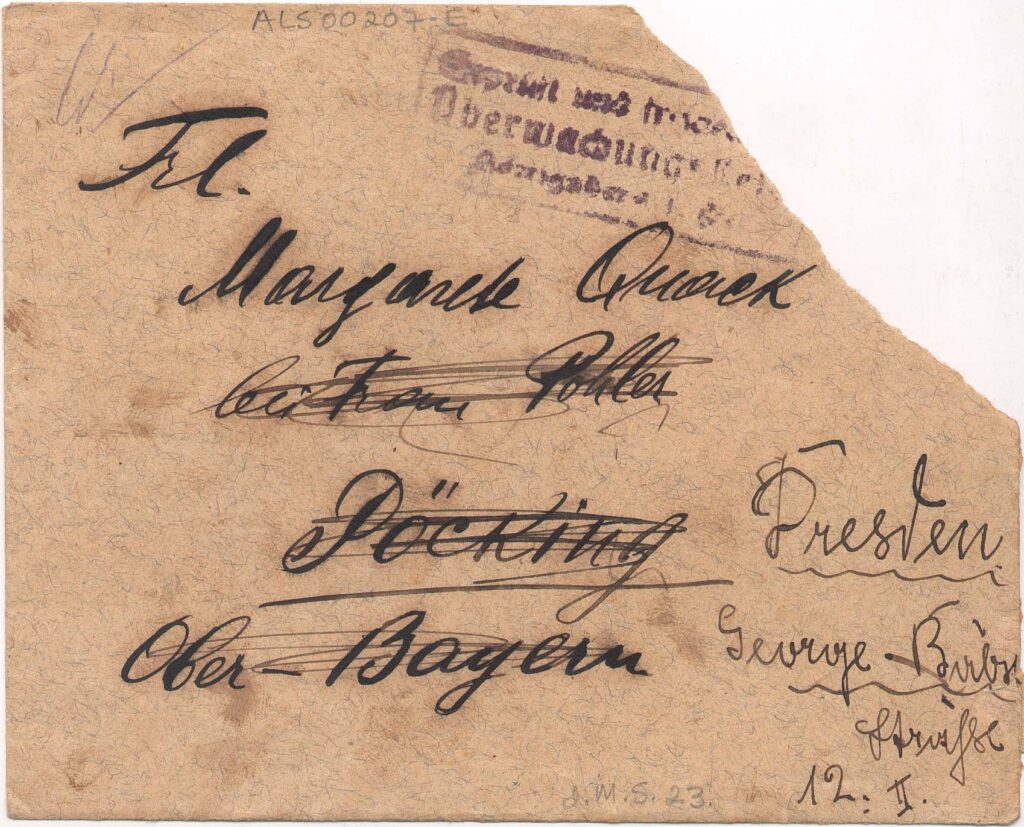 ALS00207-E
Geprüft und
Überwachungs
Frl.
Margarete Quack
bei Frau Pohler
Pöcking
Ober-Bayern
Dresden.
George-Bähr-
Straße
12. II.
J.M.S. 23.